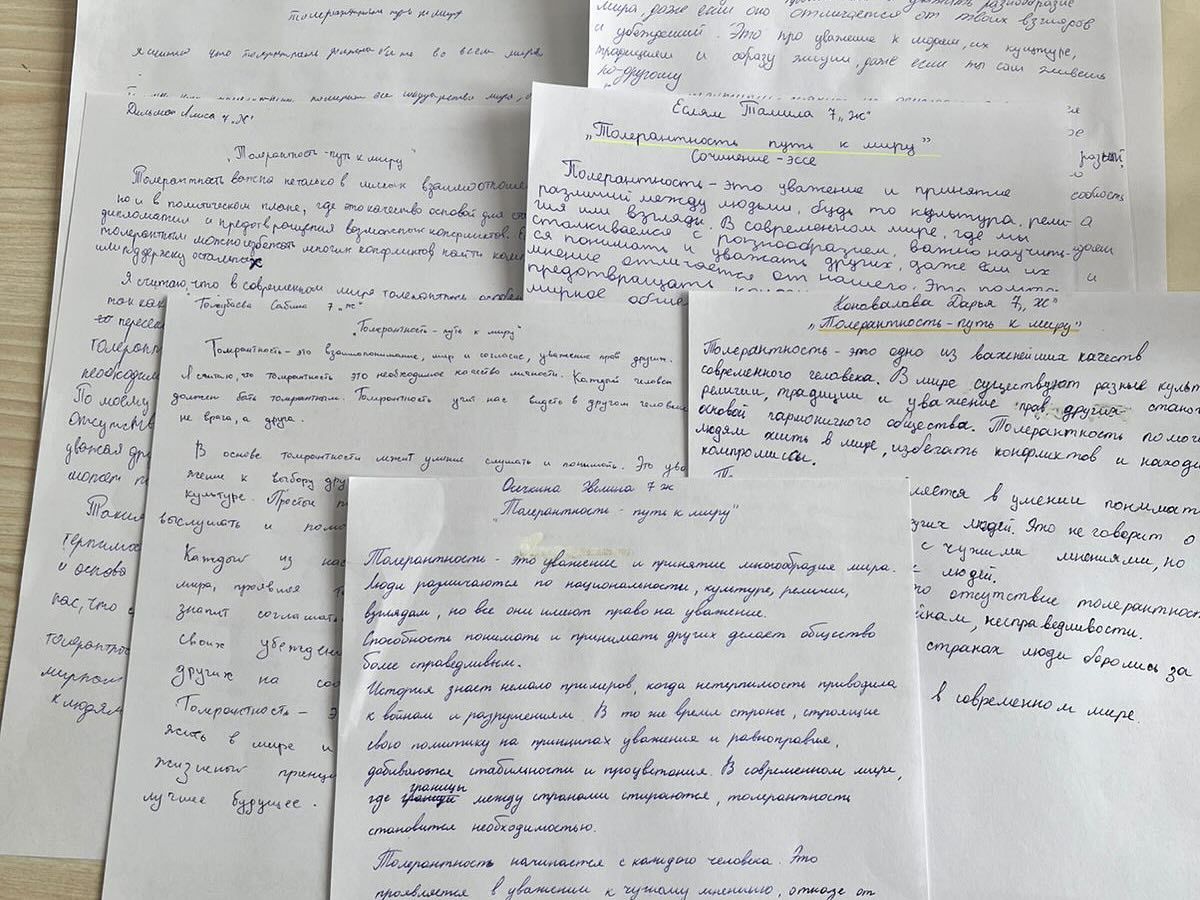 Толерантность путь к миру
Я считаю что толерантность должна быть во всем мире
мира, даже если оно отличается от твоих взглядов
и убеждений. Это про уважение к людям, их культуре,
традициям и образу жизни, даже если ты сам живёшь
по-другому
Алиса 7 „Ж"
„Толерантность - путь к миру"
Толерантность важна не только в личных взаимоотноше
но и в политическом плане, где это качество основой для
дипломатии и предотвращения возможных конфликтов.
толерантным можно избежать многих конфликтов найти
или поддержку остальных
Я считаю, что в современном мире толерантность
так как
пересек
толерант
необходим
По моему
отсутств
уважая дру
может п
Таким
терпимос
и основа
нас, что
толерантнос
мирном
к людям
Еслям Тамила 7 „Ж"
„Толерантность путь к миру"
Сочинение-эссе
Толерантность - это уважение и принятие
различий между людьми, будь то культура, рели-
гия или взгляды. В современном мире, где мы
сталкиваемся с разнообразием, важно научить-
ся понимать и уважать других, даже если их
мнение отличается от нашего. Это
предотвращать
мирное обще
Сабина 7 „Ж"
„Толерантность - путь к миру"
Толерантность - это взаимопонимание, мир и согласие, уважение прав других.
Я считаю, что толерантность это необходимое качество личности. Каждый человек
должен быть толерантным. Толерантность учит нас видеть в другом человеке
не врага, а друга.
В основе толерантности лежит умение слушать и понимать. Это ува
жение к выбору дру
культуре. Простой
выслушать и помо
Каждый из нас
мира, проявляя то
значит соглашать
своих убежден
других на
Толерантность - э
жить в мире и
жизненный принци
лучшее будущее.
Коновалова Дарья 7 „Ж"
„Толерантность - путь к миру"
Толерантность - это одно из важнейших качеств
современного человека. В мире существуют разные культ
религии, традиции и уважение прав других стано
основой гармоничного общества. Толерантность помог
людям жить в мире, избегать конфликтов и находи
компромиссы.
ляется в умении понимать
угих людей. Это не говорит о
с чужими мнениями, но
людей.
то отсутствие толерантност
йнам, несправедливости.
странах люди боролись за
в современном мире.
Осечкина Эвелина 7 ж
„Толерантность - путь к миру"
Толерантность - это уважение и принятие многообразия мира.
Люди различаются по национальности, культуре, религии,
взглядам, но все они имеют право на уважение.
Способности понимать и принимать других делает общество
более справедливым.
История знает немало примеров, когда нетерпимость приводила
к войнам и разрушениям. В то же время страны, строящие
свою политику на принципах уважения и равноправия,
добиваются стабильности и процветания. В современном мире,
где границы между странами стираются, толерантность
становится необходимостью.
Толерантность начинается с каждого человека. Это
проявляется в уважении к чужому мнению, отказе от